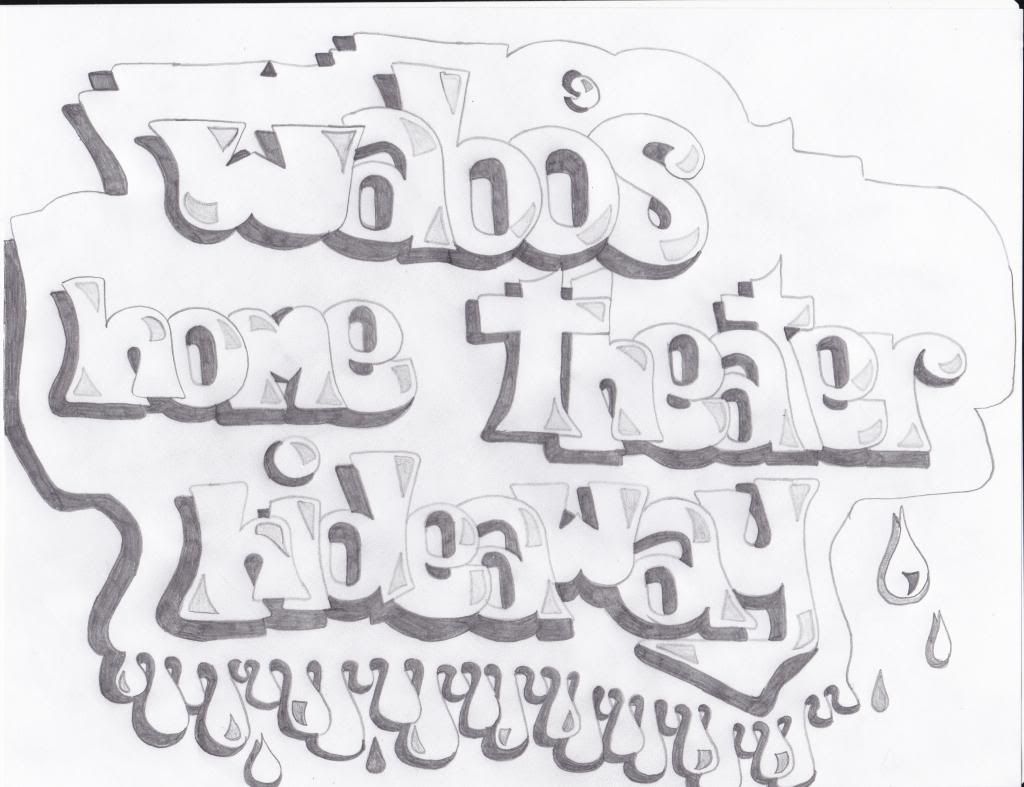 wabo's
home theater
hideaway